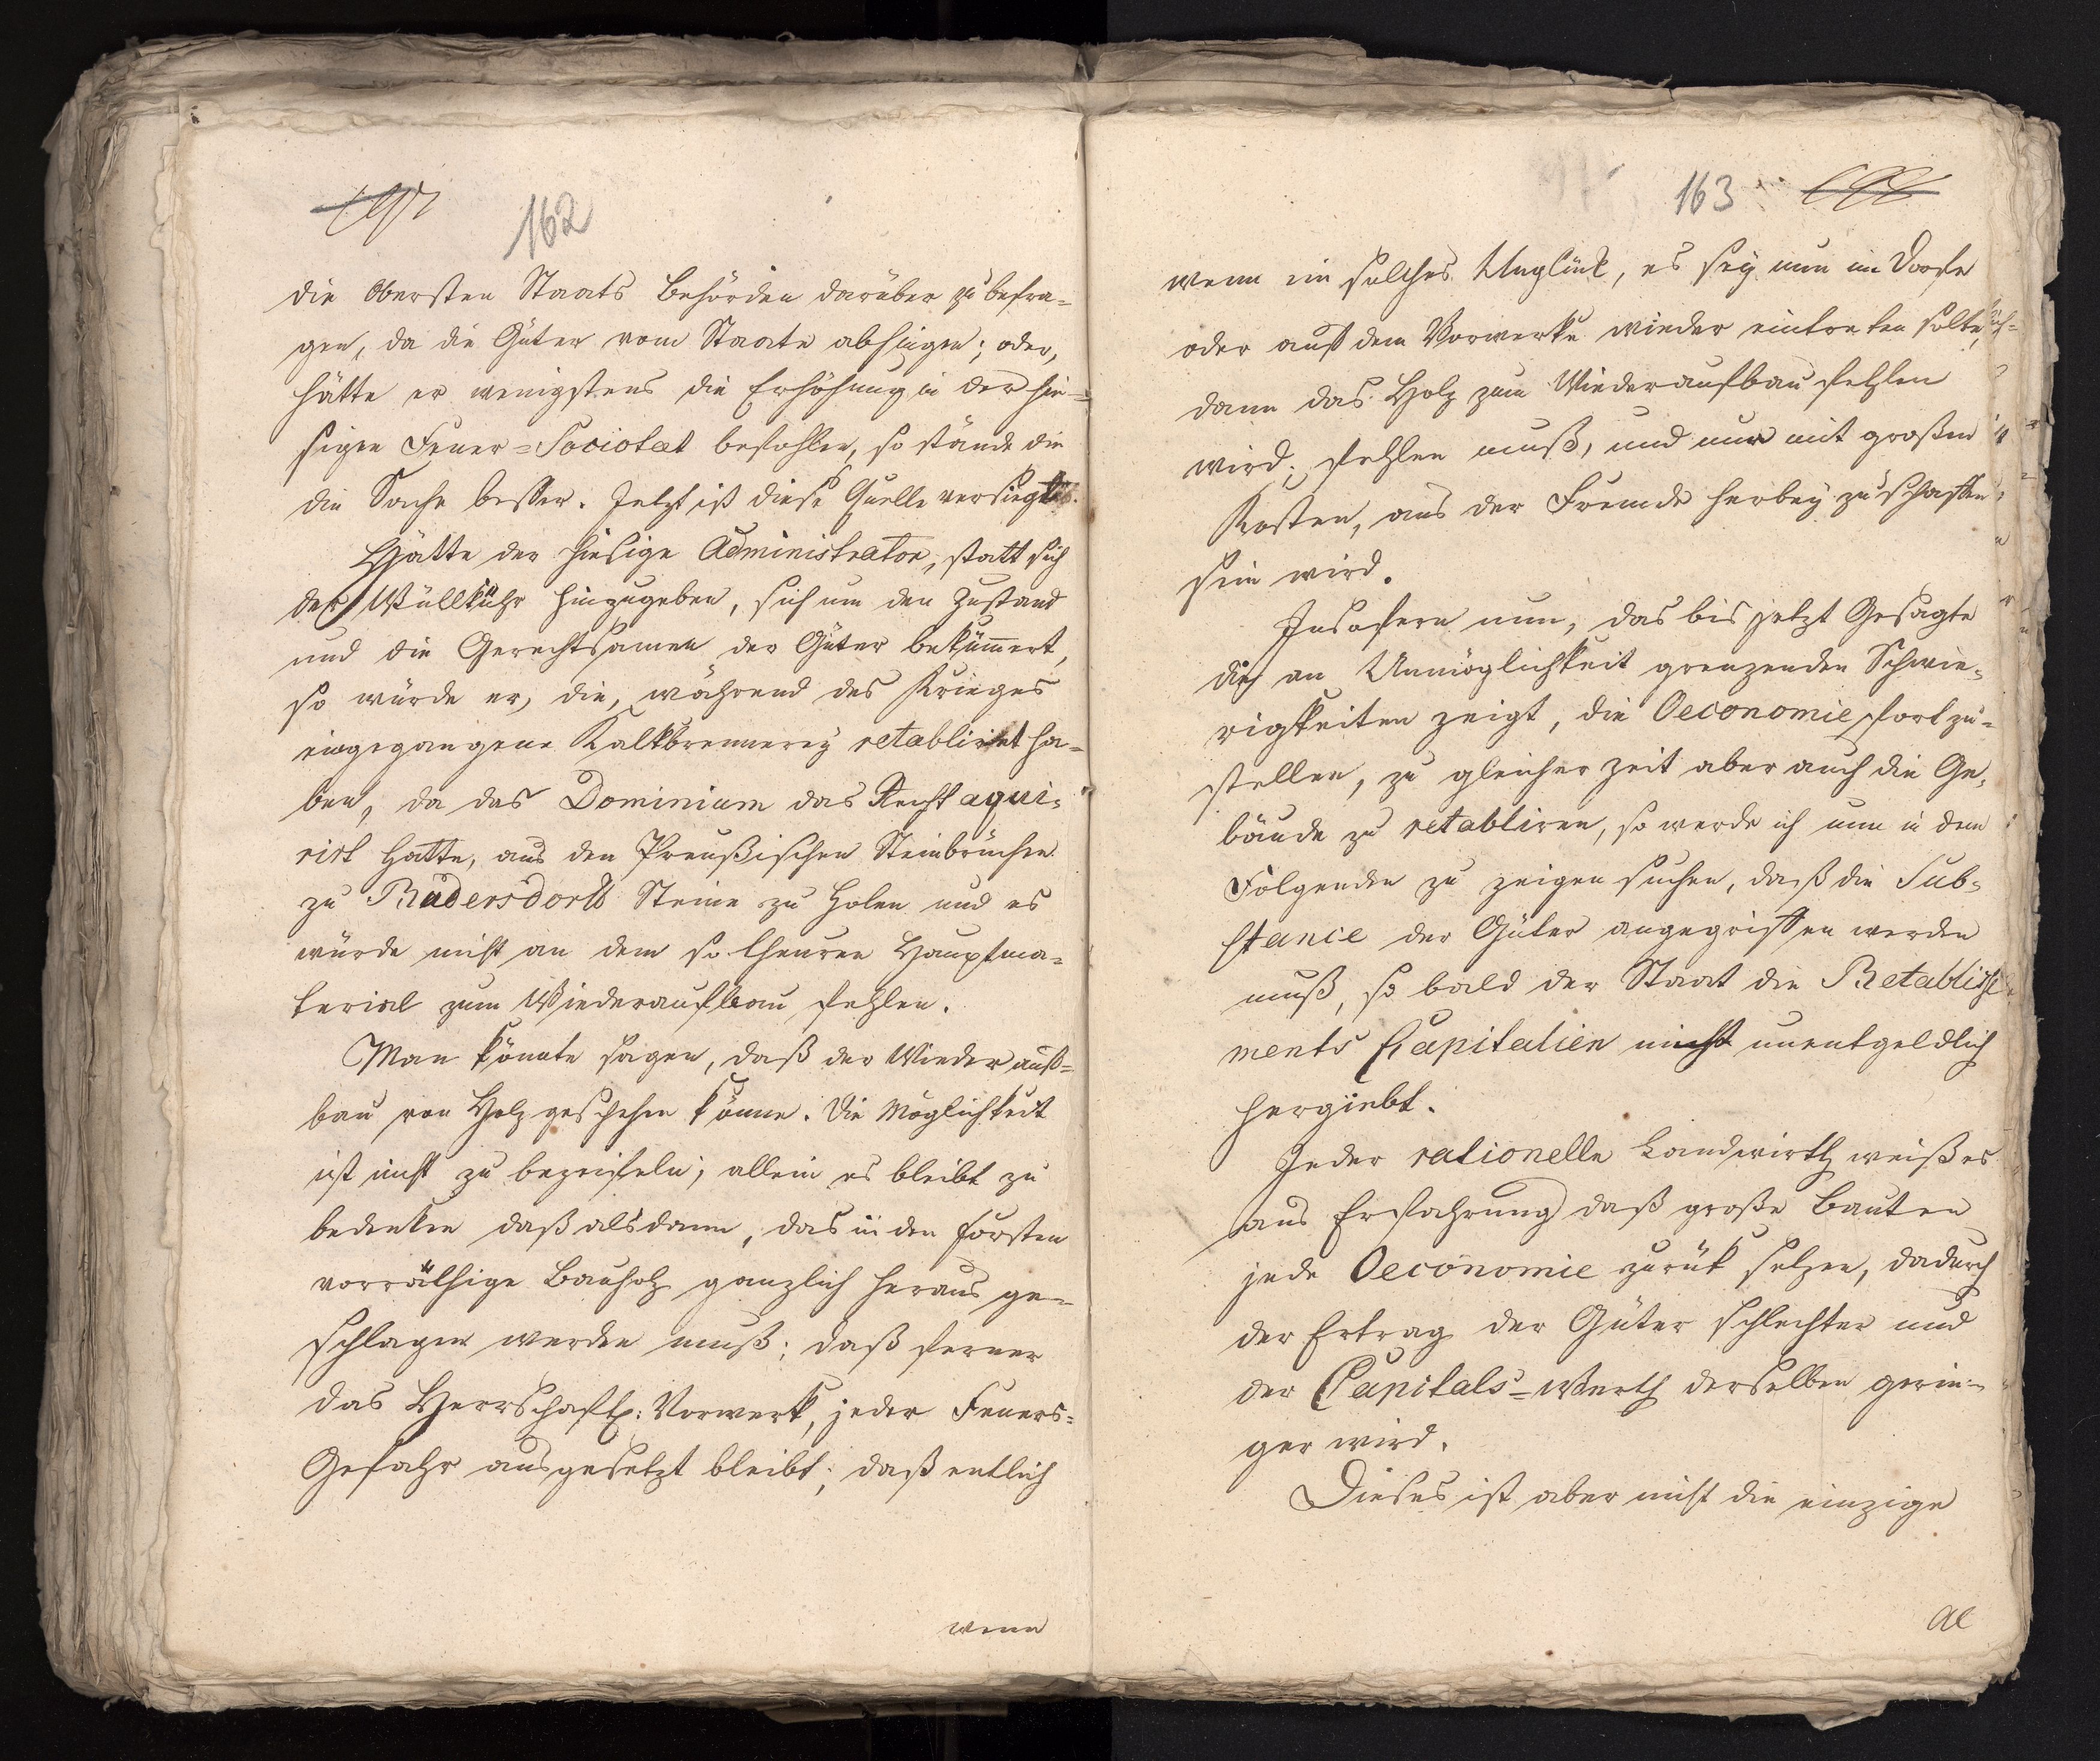 162
die Obersten Staats Behörden darüber zu befra=
gen, da die Güter vom Staate abhingen; oder,
hätte er wenigstens die Erhöhung in der hie=
sigen Feuer=Societaet befohlen, so stände die
die Sache besser. Jetzt ist diese Quelle versiegt.
Hätte der hiesige Administrator, statt sich
der Willkühr hinzugeben, sich um den Zustand
und die Gerechtsamen der Güter bekümmert,
so würde er, die, während des Krieges
eingegangene Kalkbrennerey retablirt ha=
ben, da das Dominium das Recht aqui=
rirt hatte, aus den Preußischen Steinbrüchen
zu Rüdersdorff Steine zu holen und es
würde nicht an dem so theuren Hauptma=
terial zum Wiederaufbau fehlen.
Man könnte sagen, daß der Wiederauf=
bau von Holz geschehen könne. Die Möglichkeit
ist nicht zu bezweifeln; allein es bleibt zu
bedenken daß alsdann, das in den Forsten
vorräthige Bauholz gänzlich heraus ge=
schlagen werden muß; daß ferner
das Herrschaftl: Vorwerk, jeder Feuers=
Gefahr ausgesetzt bleibt; daß entlich
wenn
163
wenn ein solches Unglück, es sey nun im Dorfe
oder auf dem Vorwerke wieder eintreten solte,
dann das Holz zum Wiederaufbau fehlen
wird, fehlen muß, und nur mit großen
Kosten, aus der Fremde herbey zu schaffen
sein wird.
Insofern nun, das bis jetzt Gesagte
die an Unmöglichkeit grenzenden Schwie=
rigkeiten zeigt, die Oeconomie fort zu=
stellen, zu gleicher Zeit aber auch die Ge=
bäude zu retabliren, so werde ich nun in dem
Folgenden zu zeigen suchen, daß die Sub=
stance der Güter angegriffen werden
muß, so bald der Staat die Retablisse
ments Capitalien nicht unentgeldlich
hergiebt.
Jeder rationelle Landwirth weiß es
aus Erfahrung daß große Bauten
jede Oeconomie zurük setzen, dadurch
der Ertrag der Güter schlechter und
der Capitals=Werth derselben gerin=
ger wird.
Dieses ist aber nicht die einzige